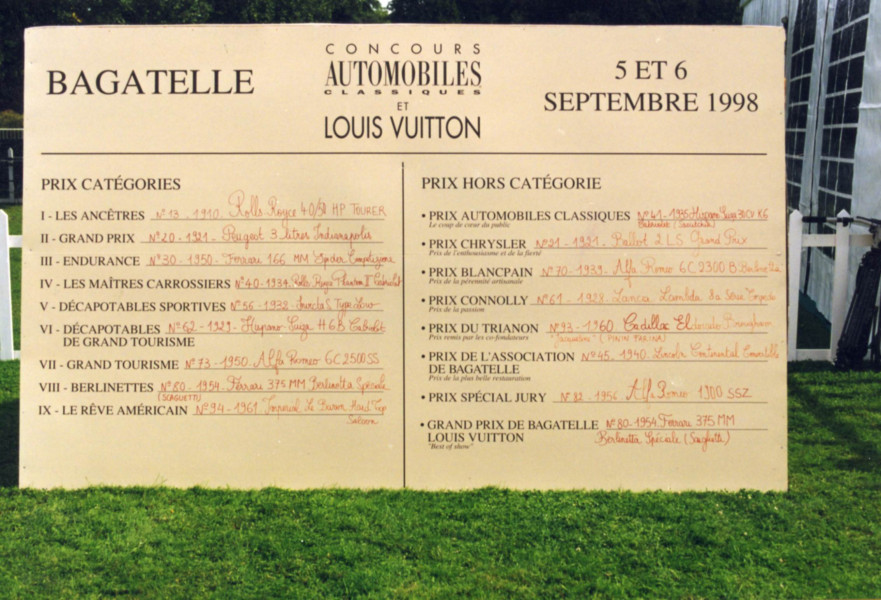 BAGATELLE
CONCOURS
AUTOMOBILES
CLASSIQUES
ET
LOUIS VUITTON
5 ET 6
SEPTEMBRE 1998
PRIX CATÉGORIES
I - LES ANCÊTRES N°13 - 1910. Rolls Royce 40/50 HP TOURER
II - GRAND PRIX N°20 - 1921 - Peugeot 3 litres Indianapolis
III - ENDURANCE N°30 - 1950 - Ferrari 166 MM Spyder
IV - LES MAÎTRES CARROSSIERS N°40 - 1934. Rolls Royce Phantom II Cabriolet
V - DÉCAPOTABLES SPORTIVES N°56 - 1932 - S Type Low
VI - DÉCAPOTABLES N°62 - 1929 - Hispano Suiza H6B Cabriolet
DE GRAND TOURISME
VII - GRAND TOURISME N°73 - 1950. Alfa Romeo 6C 2500 SS
VIII - BERLINETTES N°80 - 1954. Ferrari 375 MM Berlinetta Spéciale
(SCAGLIETTI)
IX - LE RÊVE AMÉRICAIN N°94 - 1961. Imperial Le Baron Hard Top
Saloon
PRIX HORS CATÉGORIE
• PRIX AUTOMOBILES CLASSIQUES N°41 - 1935 Hispano Suiza 30CV K6
Le coup de cœur du public
• PRIX CHRYSLER N°21 - 1921. Ballot 2 LS Grand Prix
Prix de l'enthousiasme et de la fierté
• PRIX BLANCPAIN N°70 - 1939. Alfa Romeo 6C 2300 B
Prix de la pérennité artisanale
• PRIX CONNOLLY N°61 - 1928. Lancia Lambda 8a Série Torpedo
Prix de la passion
• PRIX DU TRIANON N°93 - 1960 Cadillac Eldorado Brougham
Prix remis par les co-fondateurs "Jacqueline" (PININ FARINA)
• PRIX DE L'ASSOCIATION N°45. 1940. Lincoln Continental
DE BAGATELLE
Prix de la plus belle restauration
• PRIX SPÉCIAL JURY N°82 - 1956 Alfa Romeo 1900 SSZ
• GRAND PRIX DE BAGATELLE N°80 - 1954 Ferrari 375 MM
LOUIS VUITTON Berlinetta Spéciale (Scaglietti)
"Best of show"